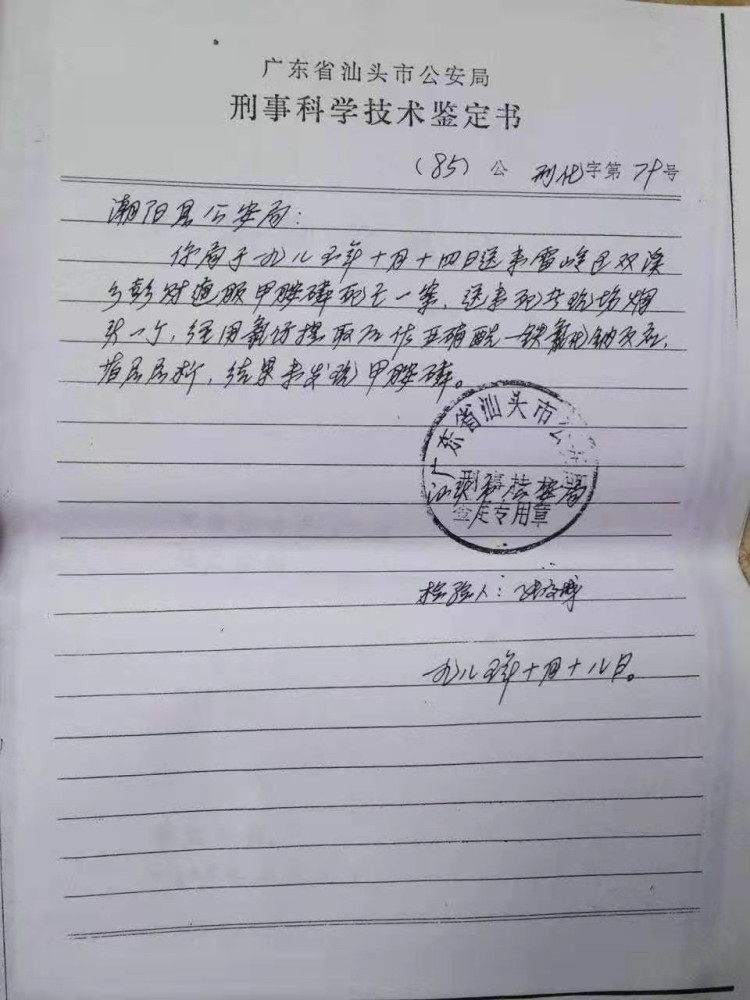 广东省汕头市公安局
刑事科学技术鉴定书
(85) 公 刑化字第79号
潮阳县公安局:
你局于一九八五年十月十四日送来雷岭区双溪
乡彭财造服甲胺磷死亡一案,送来死者现场烟
头一个,经用氯仿提取后作亚硝酰一铁氰化钠反应,
薄层层析,结果未发现甲胺磷。
广东省汕头市公
刑事技
汕头市公安局
鉴定专用章
检验人:
一九八五年十月十八日。